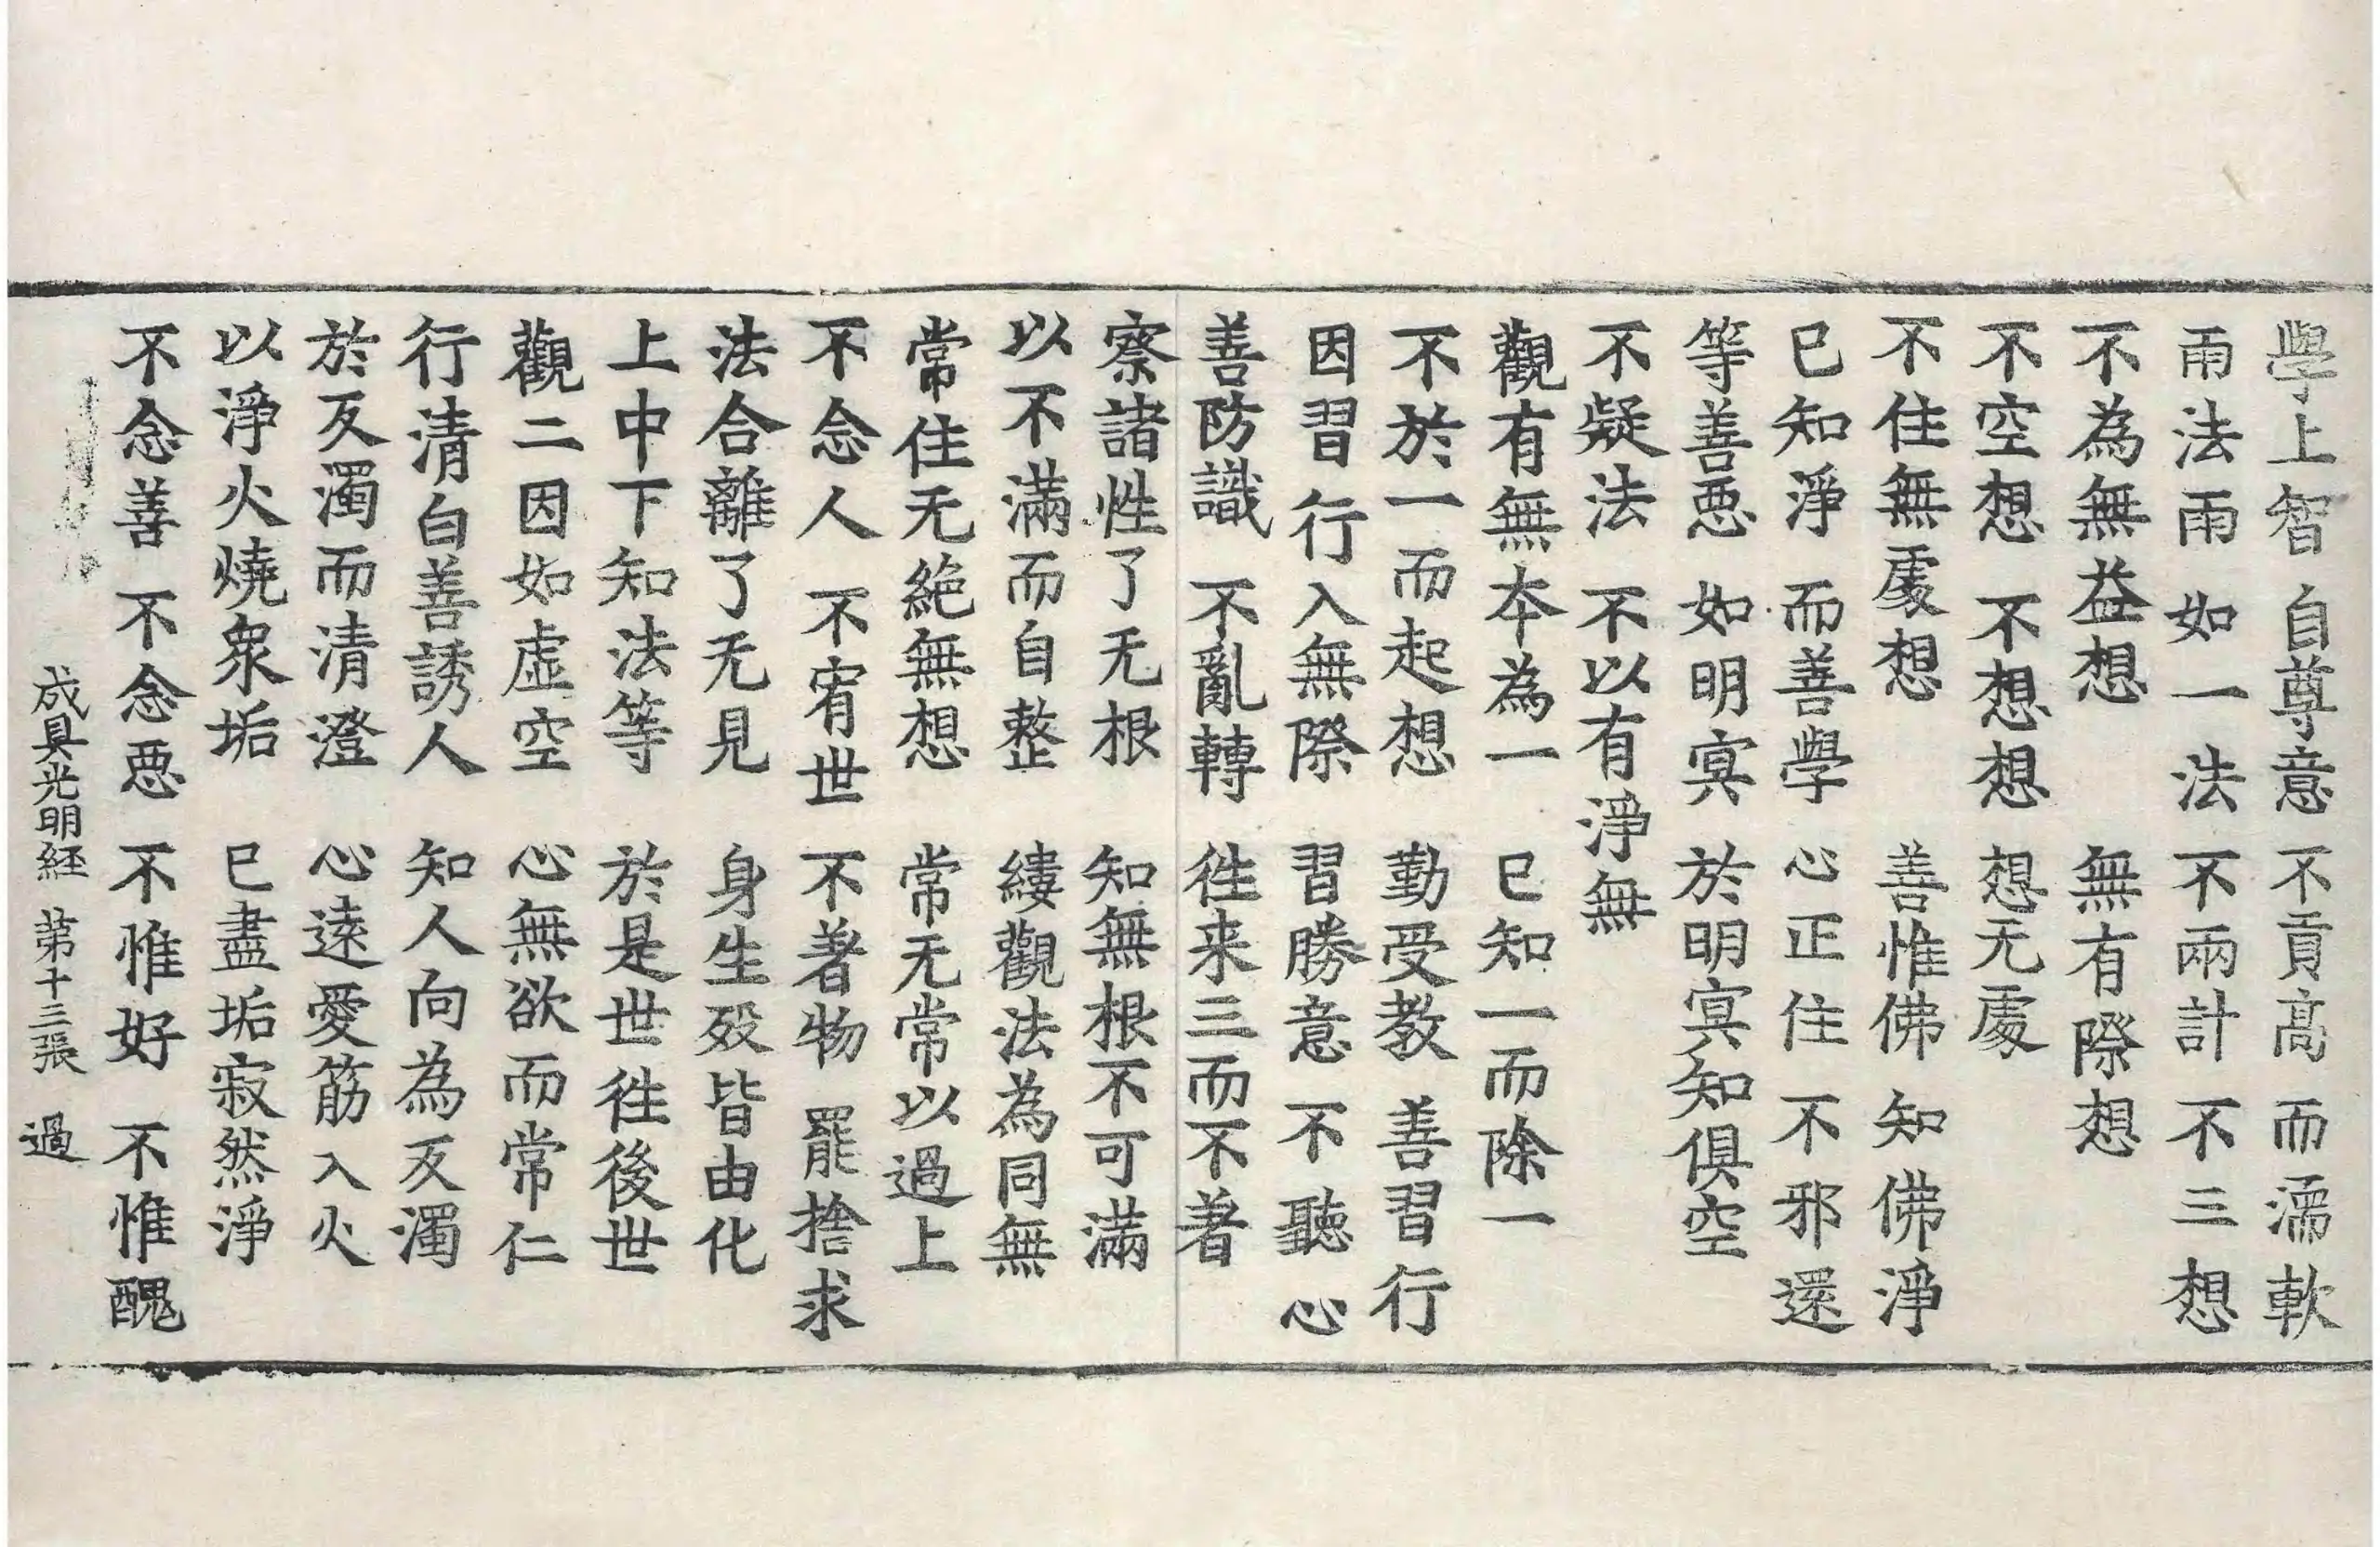 學上智 自尊意 不貢高 而濡軟
兩法兩 如一法 不兩計 不三想
不為無益想 無有際想
不空想 不想想 想无處
不住無處想 善惟佛 知佛淨
已知淨 而善學 心正住 不邪還
等善惡 如明冥 於明冥知俱空
不疑法 不以有淨無
觀有無本為一 已知一而除一
不於一而起想 勤受教 善習行
因習行入無際 習勝意 不聽心
善防識 不亂轉 往来三而不著
察諸性了无根 知無根不可滿
以不滿而自整 縷觀法為同無
常住无絕無想 常无常以過上
不念人 不宥世 不著物 罷捨求
法合離了无見 身生歿皆由化
上中下知法等 於是世往後世
觀二因如虛空 心無欲而常仁
行清白善誘人 知人向為反濁
於反濁而清澄 心遠愛筋入火
以淨火燒衆垢 已盡垢寂然淨
不念善 不念惡 不惟好 不惟醜
成具光明経 第十三張 過